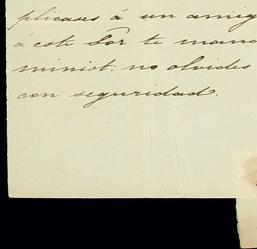 plicases á un amig
á este Sor. te mand
minist: no olvides
con seguridad.